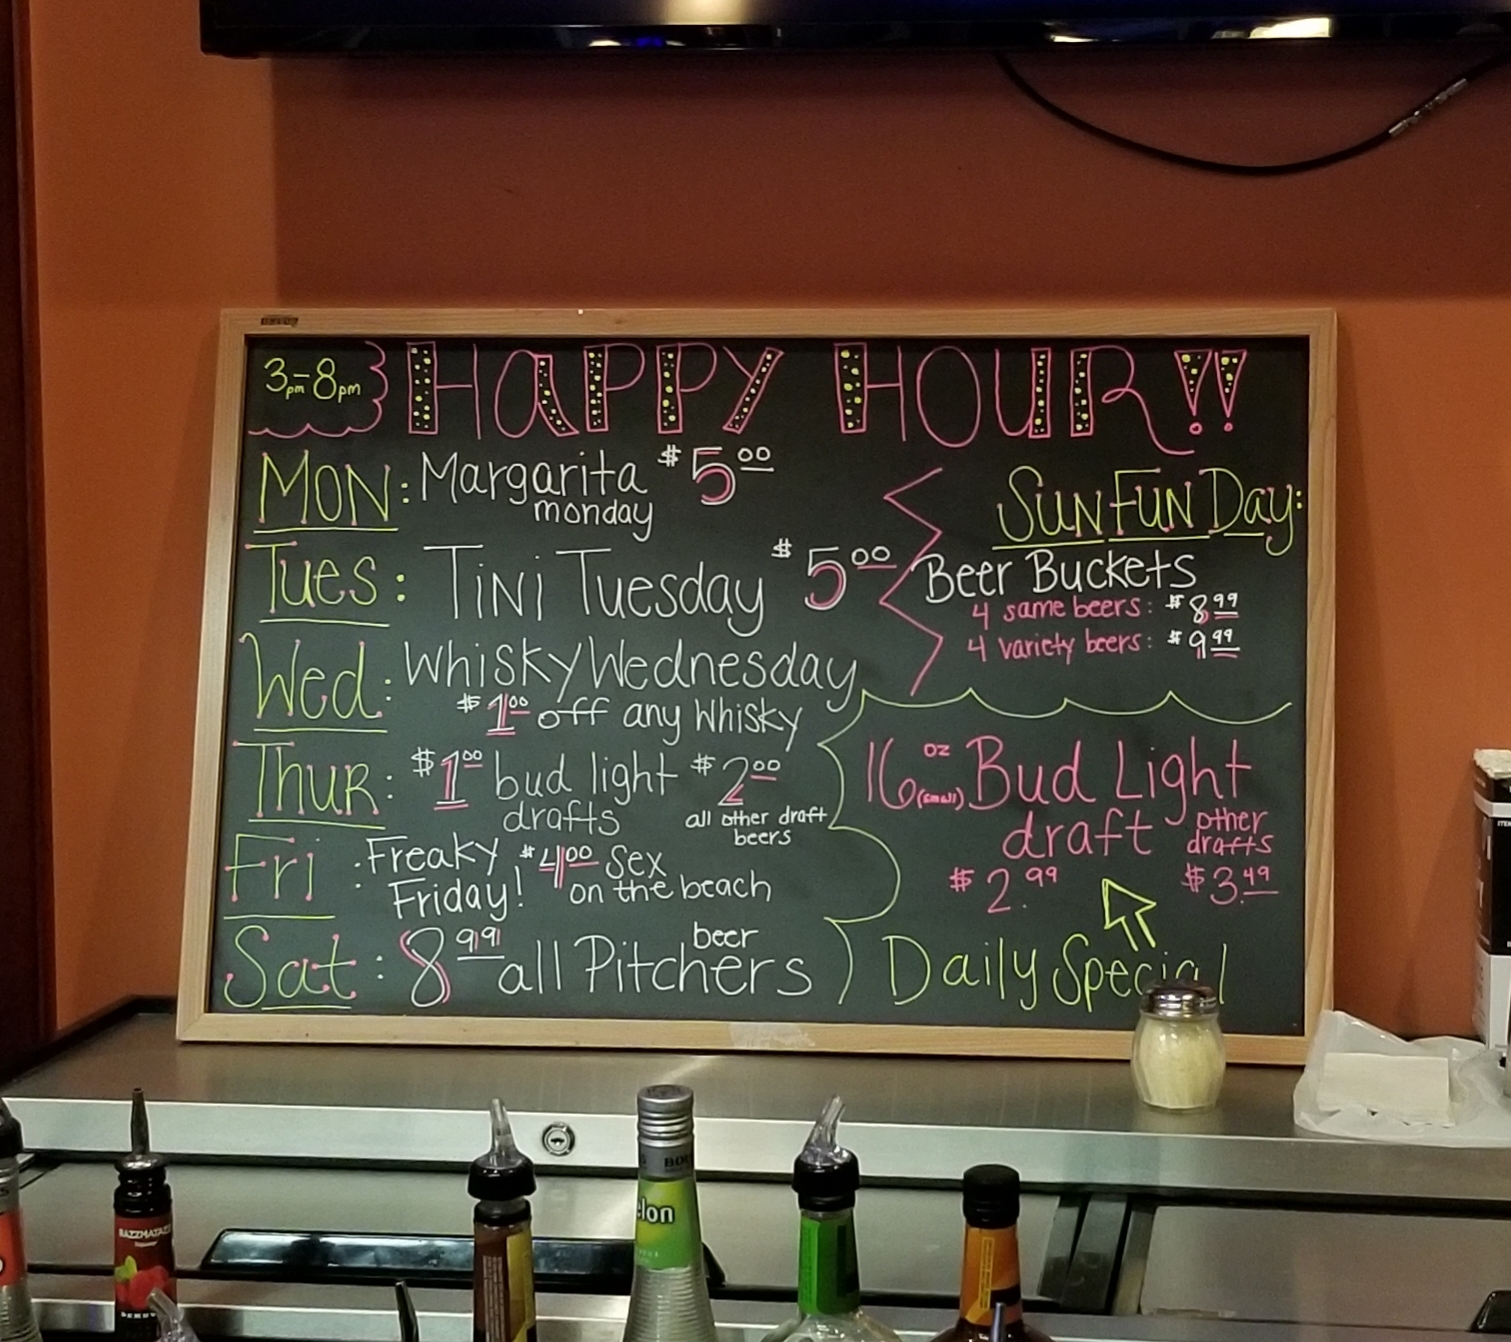 3pm-8pm
HAPPY HOUR!!
MON: Margarita $5.00
monday
Tues: Tini Tuesday $5.00
Wed: Whisky Wednesday
$1.00 off any Whisky
Thur: $1.00 bud light $2.00
drafts all other draft
beers
Fri: Freaky $4.00 Sex
Friday! on the beach
Sat: 8.99 all beer Pitchers
SunFunDay:
Beer Buckets
4 same beers: $8.99
4 variety beers: $9.99
16 oz (small) Bud Light
draft other
drafts
$2.99 $3.49
Daily Special
RAZZMATAZZ
BOL
elon